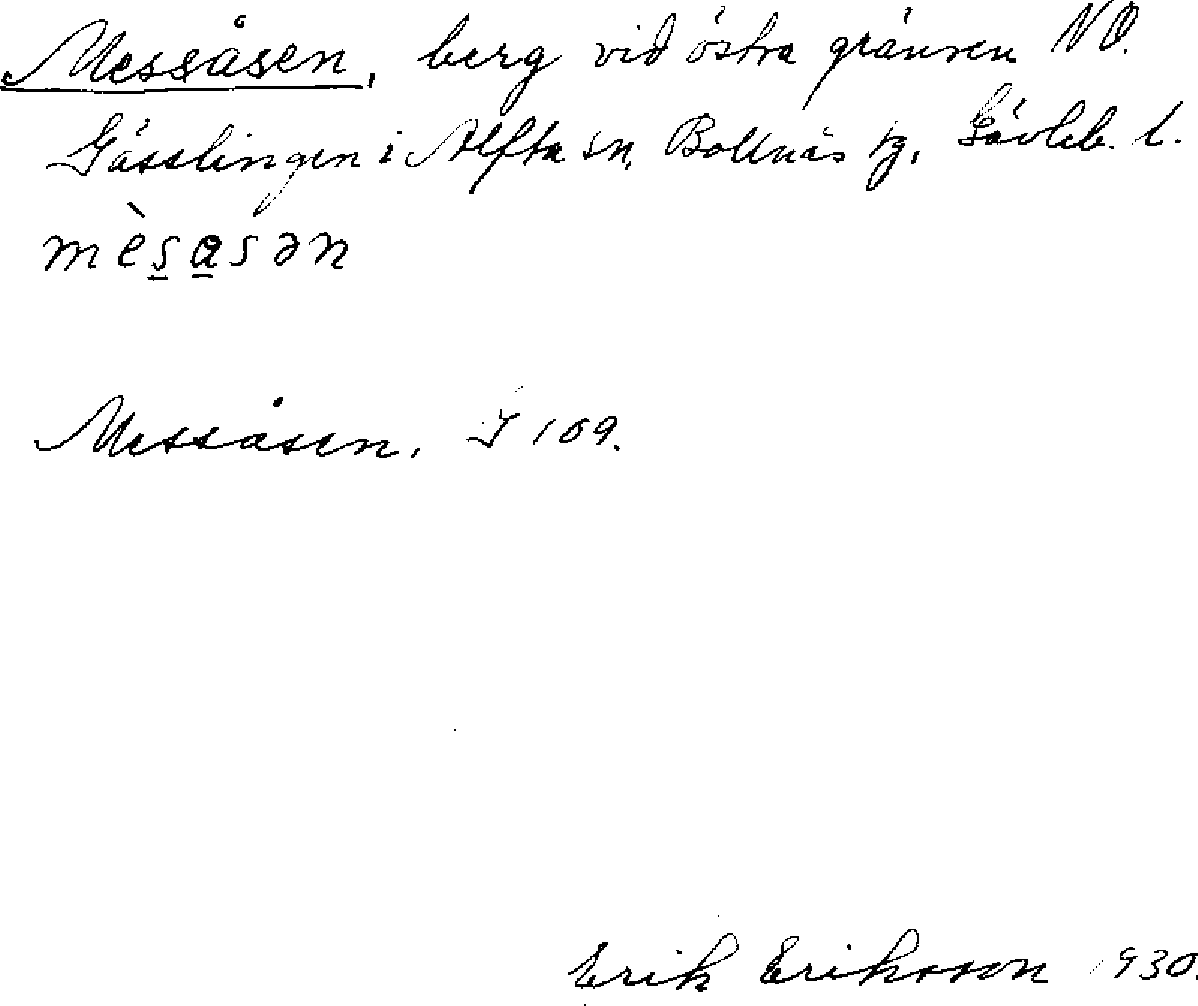 Messåsen, berg vid östra gränsen NO.
Gässlingen i Alfta sn, Bollnäs tg, Gävleb. l.
mès̲a̲sən
Messåsen. J 109.
Erik Eriksson 1930.